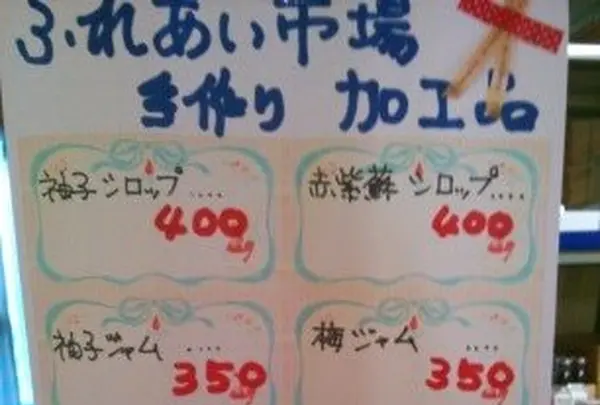 ふれあい市場
手作り 加工品
柚子シロップ....
400
赤紫蘇 シロップ....
400
柚子ジャム ....
350
梅ジャム ....
350